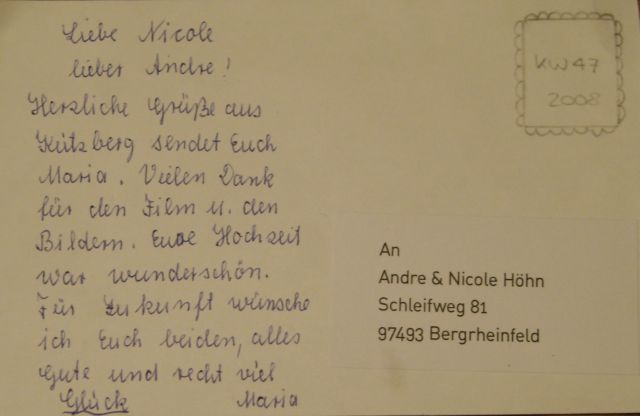 Liebe Nicole
lieber Andre!
Herzliche Grüße aus
Kützberg sendet Euch
Maria. Vielen Dank
für den Film u. den
Bildern. Eure Hochzeit
war wunderschön.
Für Zukunft wünsche
ich Euch beiden, alles
Gute und recht viel
Glück Maria
KW47
2008
An
Andre & Nicole Höhn
Schleifweg 81
97493 Bergrheinfeld